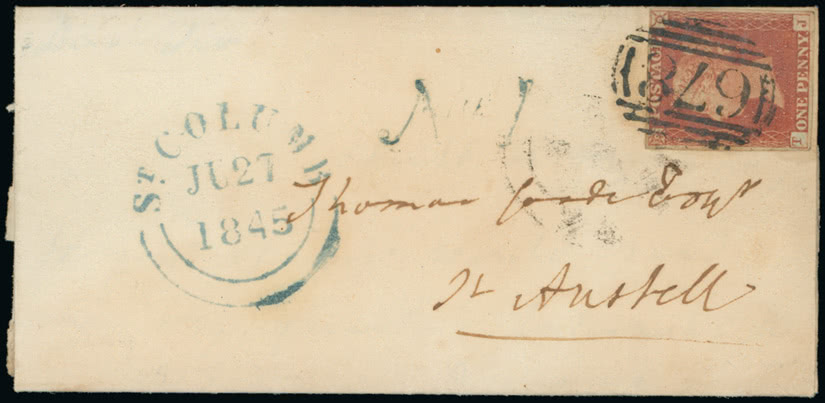 POSTAGE
ONE PENNY
T J
679
ST COLUMB
JU 27
1845
No 1
Thomas Coode Esqr
St Austell